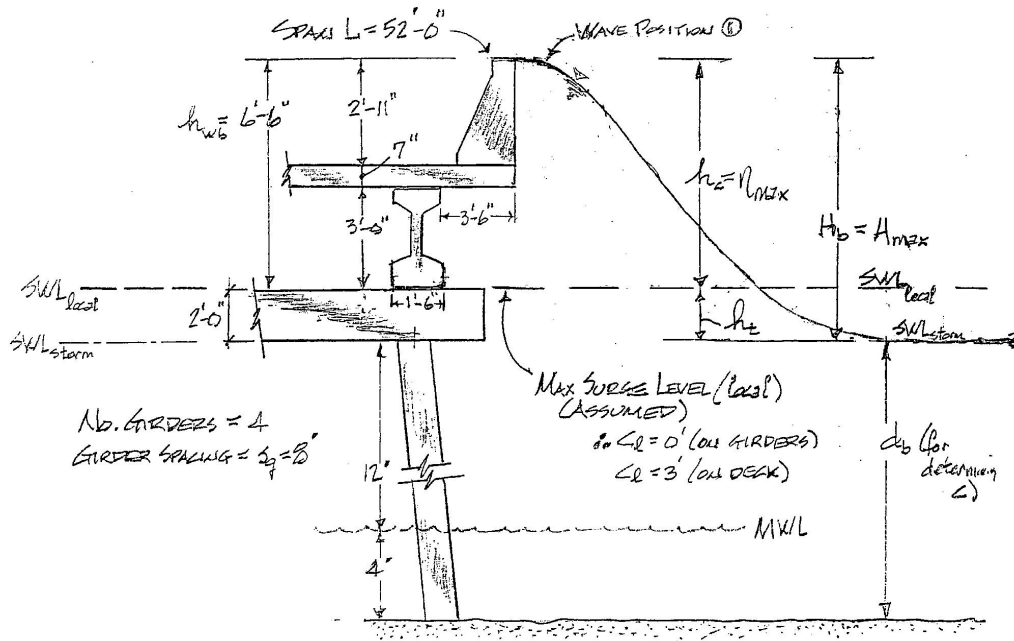 SPAN L = 52'-0"
WAVE POSITION ⑧
h_wb = 6'-6"
2'-11"
7"
3'-0"
3'-6"
h_c = η_max
H_b = H_max
SWL_local
SWL_local
1'-6"
2'-0"
h_t
SWL_storm
SWL_storm
MAX SURGE LEVEL (local)
(ASSUMED)
C_l = 0' (ON GIRDERS)
C_l = 3' (ON DECK)
No. GIRDERS = 4
GIRDER SPACING = S_g = 8'
12'
d_b (for
determining
C)
MWL
4'